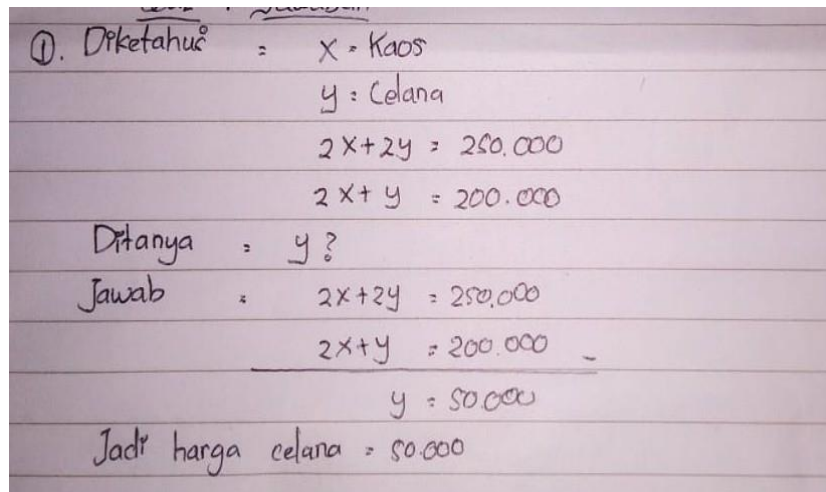 ①. Diketahui = x = Kaos
y = Celana
2x+2y = 250.000
2x+y = 200.000
Ditanya = y?
Jawab = 2x+2y = 250.000
2x+y = 200.000 -
y = 50.000
Jadi harga celana = 50.000